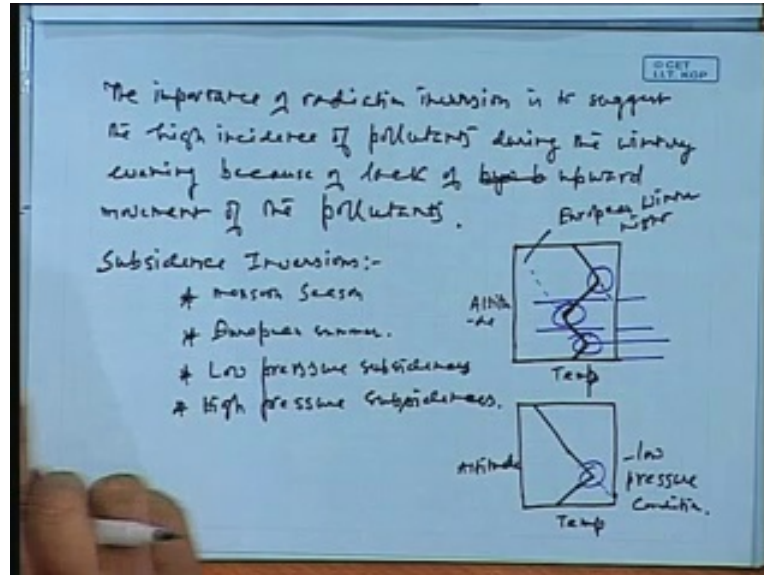 © CET
I.I.T. KGP
The importance of radiation inversion is to suggest
the high incidence of pollutants during the wintry
evening because of lack of upward
movement of the pollutants.
Subsidence Inversions:-
* monsoon Season
* European summer.
* Low pressure subsidences
* High pressure subsidences.
European Winter
night
Altitu
-de
Temp
Altitude
Temp
-low
pressure
Condition.